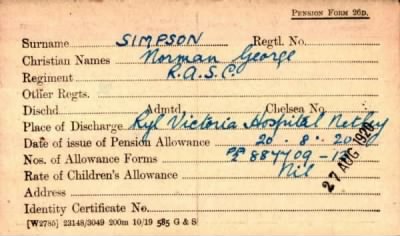 PENSION FORM 26D.
Surname SIMPSON Regtl. No.
Christian Names Norman George
Regiment R.A.S.C.
Other Regts.
Dischd. Admtd. Chelsea No.
Place of Discharge Ryl Victoria Hospital Netley
Date of issue of Pension Allowance 20.8.20
Nos. of Allowance Forms 887709
Rate of Children's Allowance Nil
27 AUG 1920
Address
Identity Certificate No.
[W2785] 23148/3049 200m 10/19 585 G & S